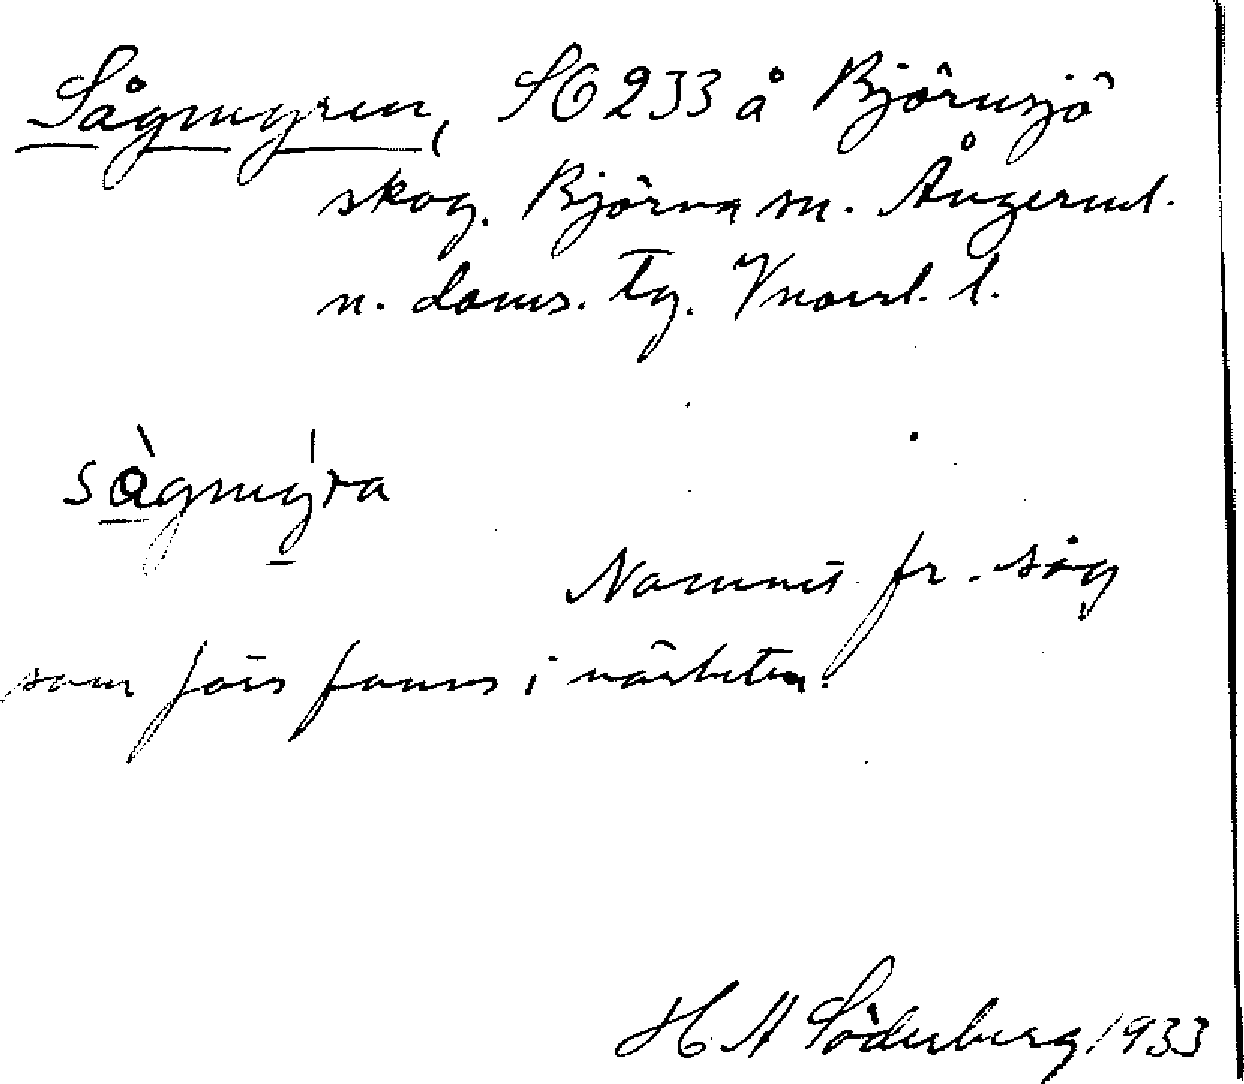 Sågmyren, SO 233 å Björnsjö
skog. Björna sn. Ångerml.
n. doms. tg. Vnorrl. l.
sågmy̱ra
Namnet fr. såg
som förr fanns i närheten.
H A Söderberg 1933